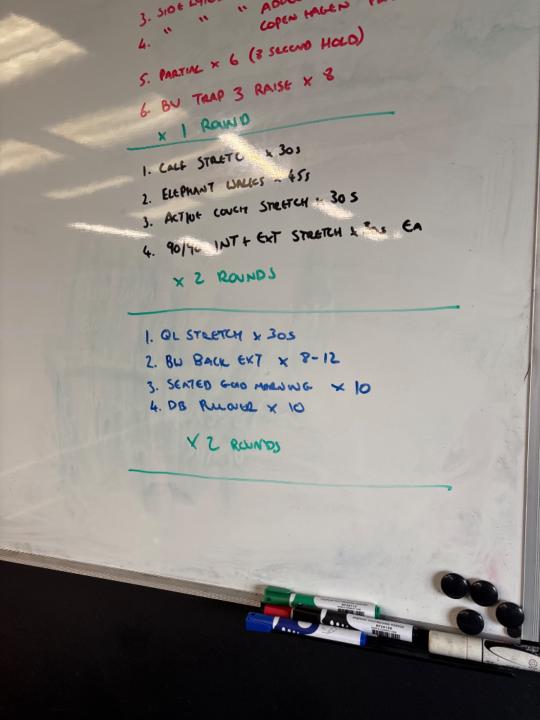 3. SIDE
4. " " " ADD
COPENHAGEN
5. PARTIAL x 6 (3 SECOND HOLD)
6. BW TRAP 3 RAISE x 8
x 1 ROUND
1. CALF STRETCH x 30s
2. ELEPHANT WALKS x 45s
3. ACTIVE COUCH STRETCH x 30s
4. 90/90 INT + EXT STRETCH x EA
x 2 ROUNDS
1. QL STRETCH x 30s
2. BW BACK EXT x 8-12
3. SEATED GOOD MORNING x 10
4. DB PULLOVER x 10
x 2 ROUNDS